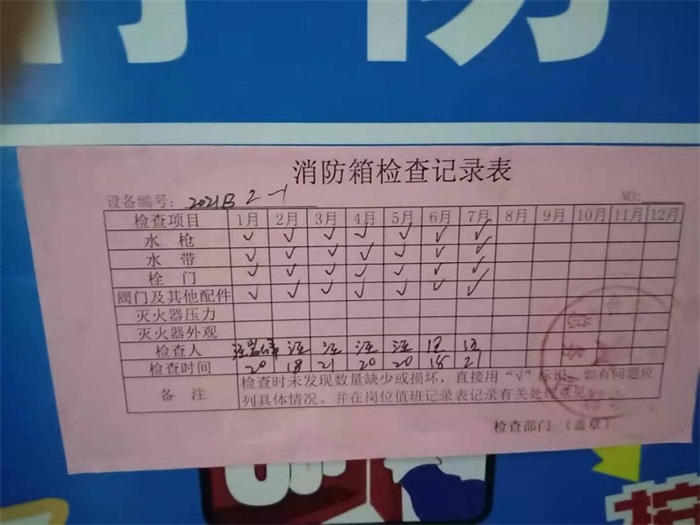 消防箱检查记录表
设备编号: 2021B 2-1 NO:
检查项目 1月 2月 3月 4月 5月 6月 7月 8月 9月 10月 11月 12月
水枪 √ √ √ √ √ √ √
水带 √ √ √ √ √ √ √
栓门 √ √ √ √ √ √ √
阀门及其他配件 √ √ √ √ √ √ √
灭火器压力
灭火器外观
检查人 汪 汪 汪 汪
检查时间 20 18 21 20 20 18 21
备注 检查时未发现数量缺少或损坏，直接用“√”标识。如有问题应
列具体情况。并在岗位值班记录表记录有关处理意见
检查部门 （盖章）